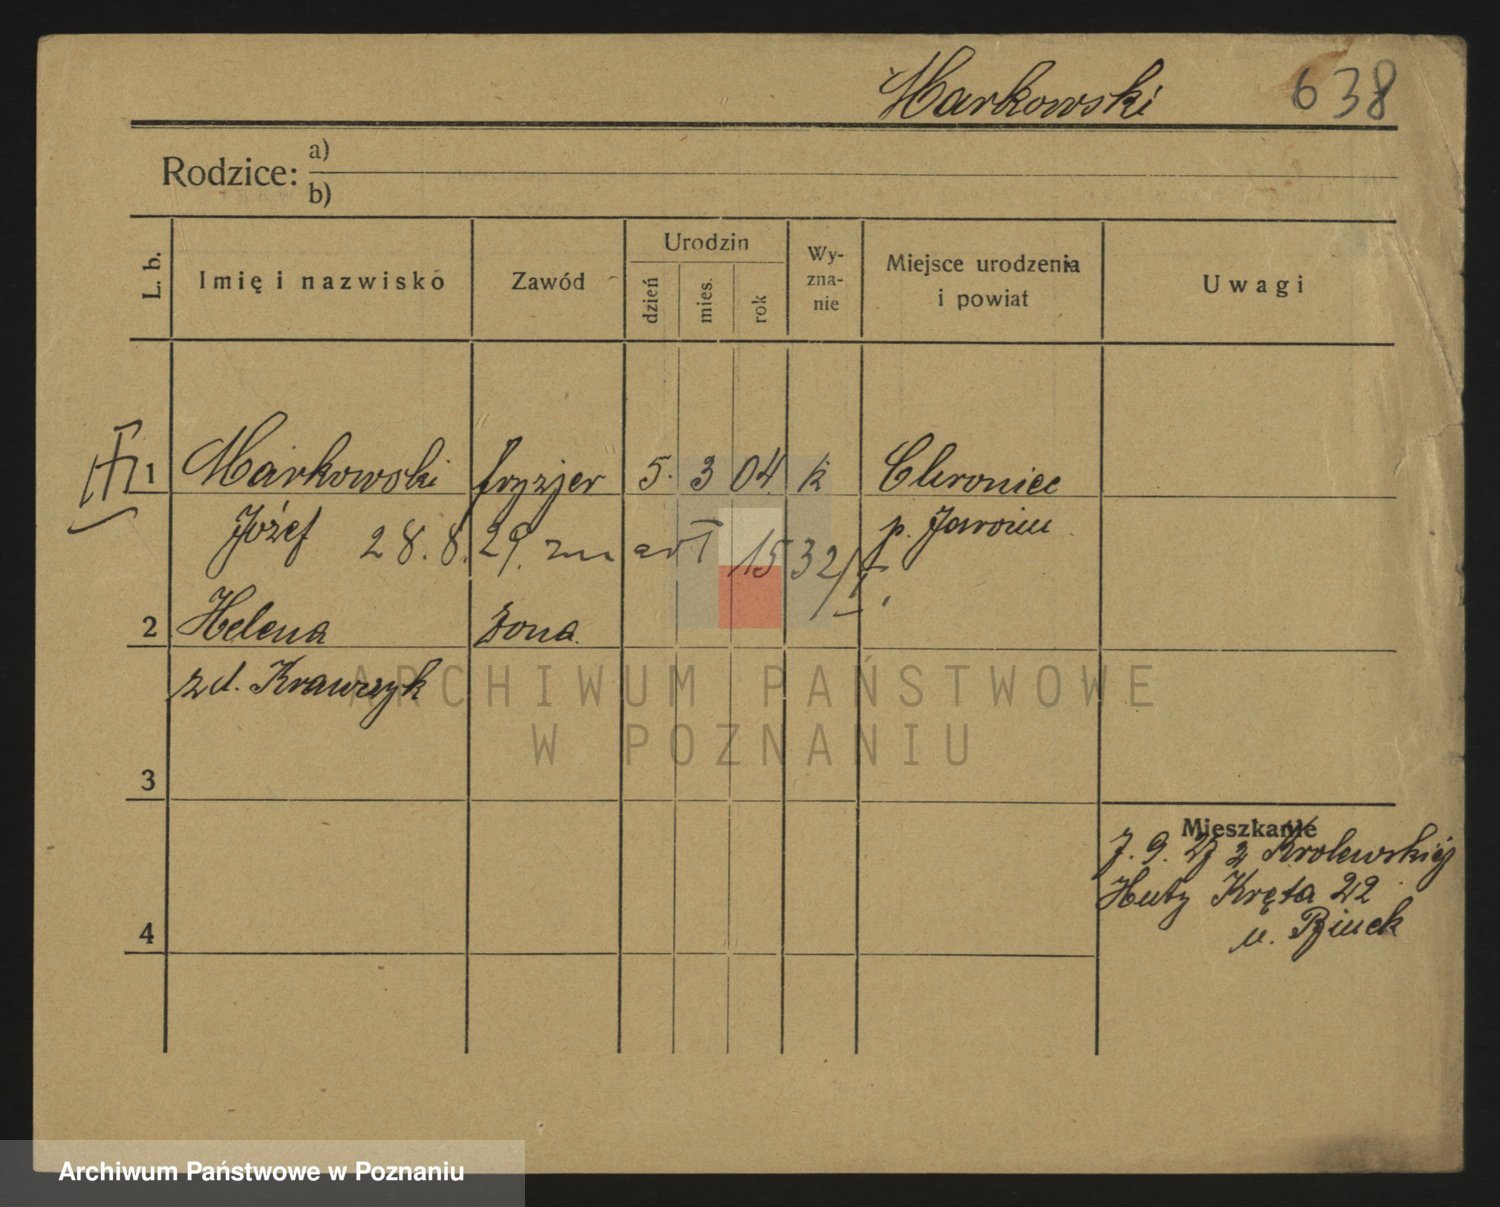 Markowski 638
Rodzice: a)
b)
L. b. Imię i nazwisko Zawód Urodzin dzień mies. rok Wy-zna-nie Miejsce urodzenia i powiat Uwagi
1 Markowski fryzjer 5. 3 04. k Chroniec
Józef 28.8.29. zmart 1532/I. p. Jarocin
2 Helena żona
zd. Krawczyk
ARCHIWUM PAŃSTWOWE
W POZNANIU
3
Mieszkanie
7. 9. 27 z Krolewskiej
Huty Kręta 22
u.
4
Archiwum Państwowe w Poznaniu